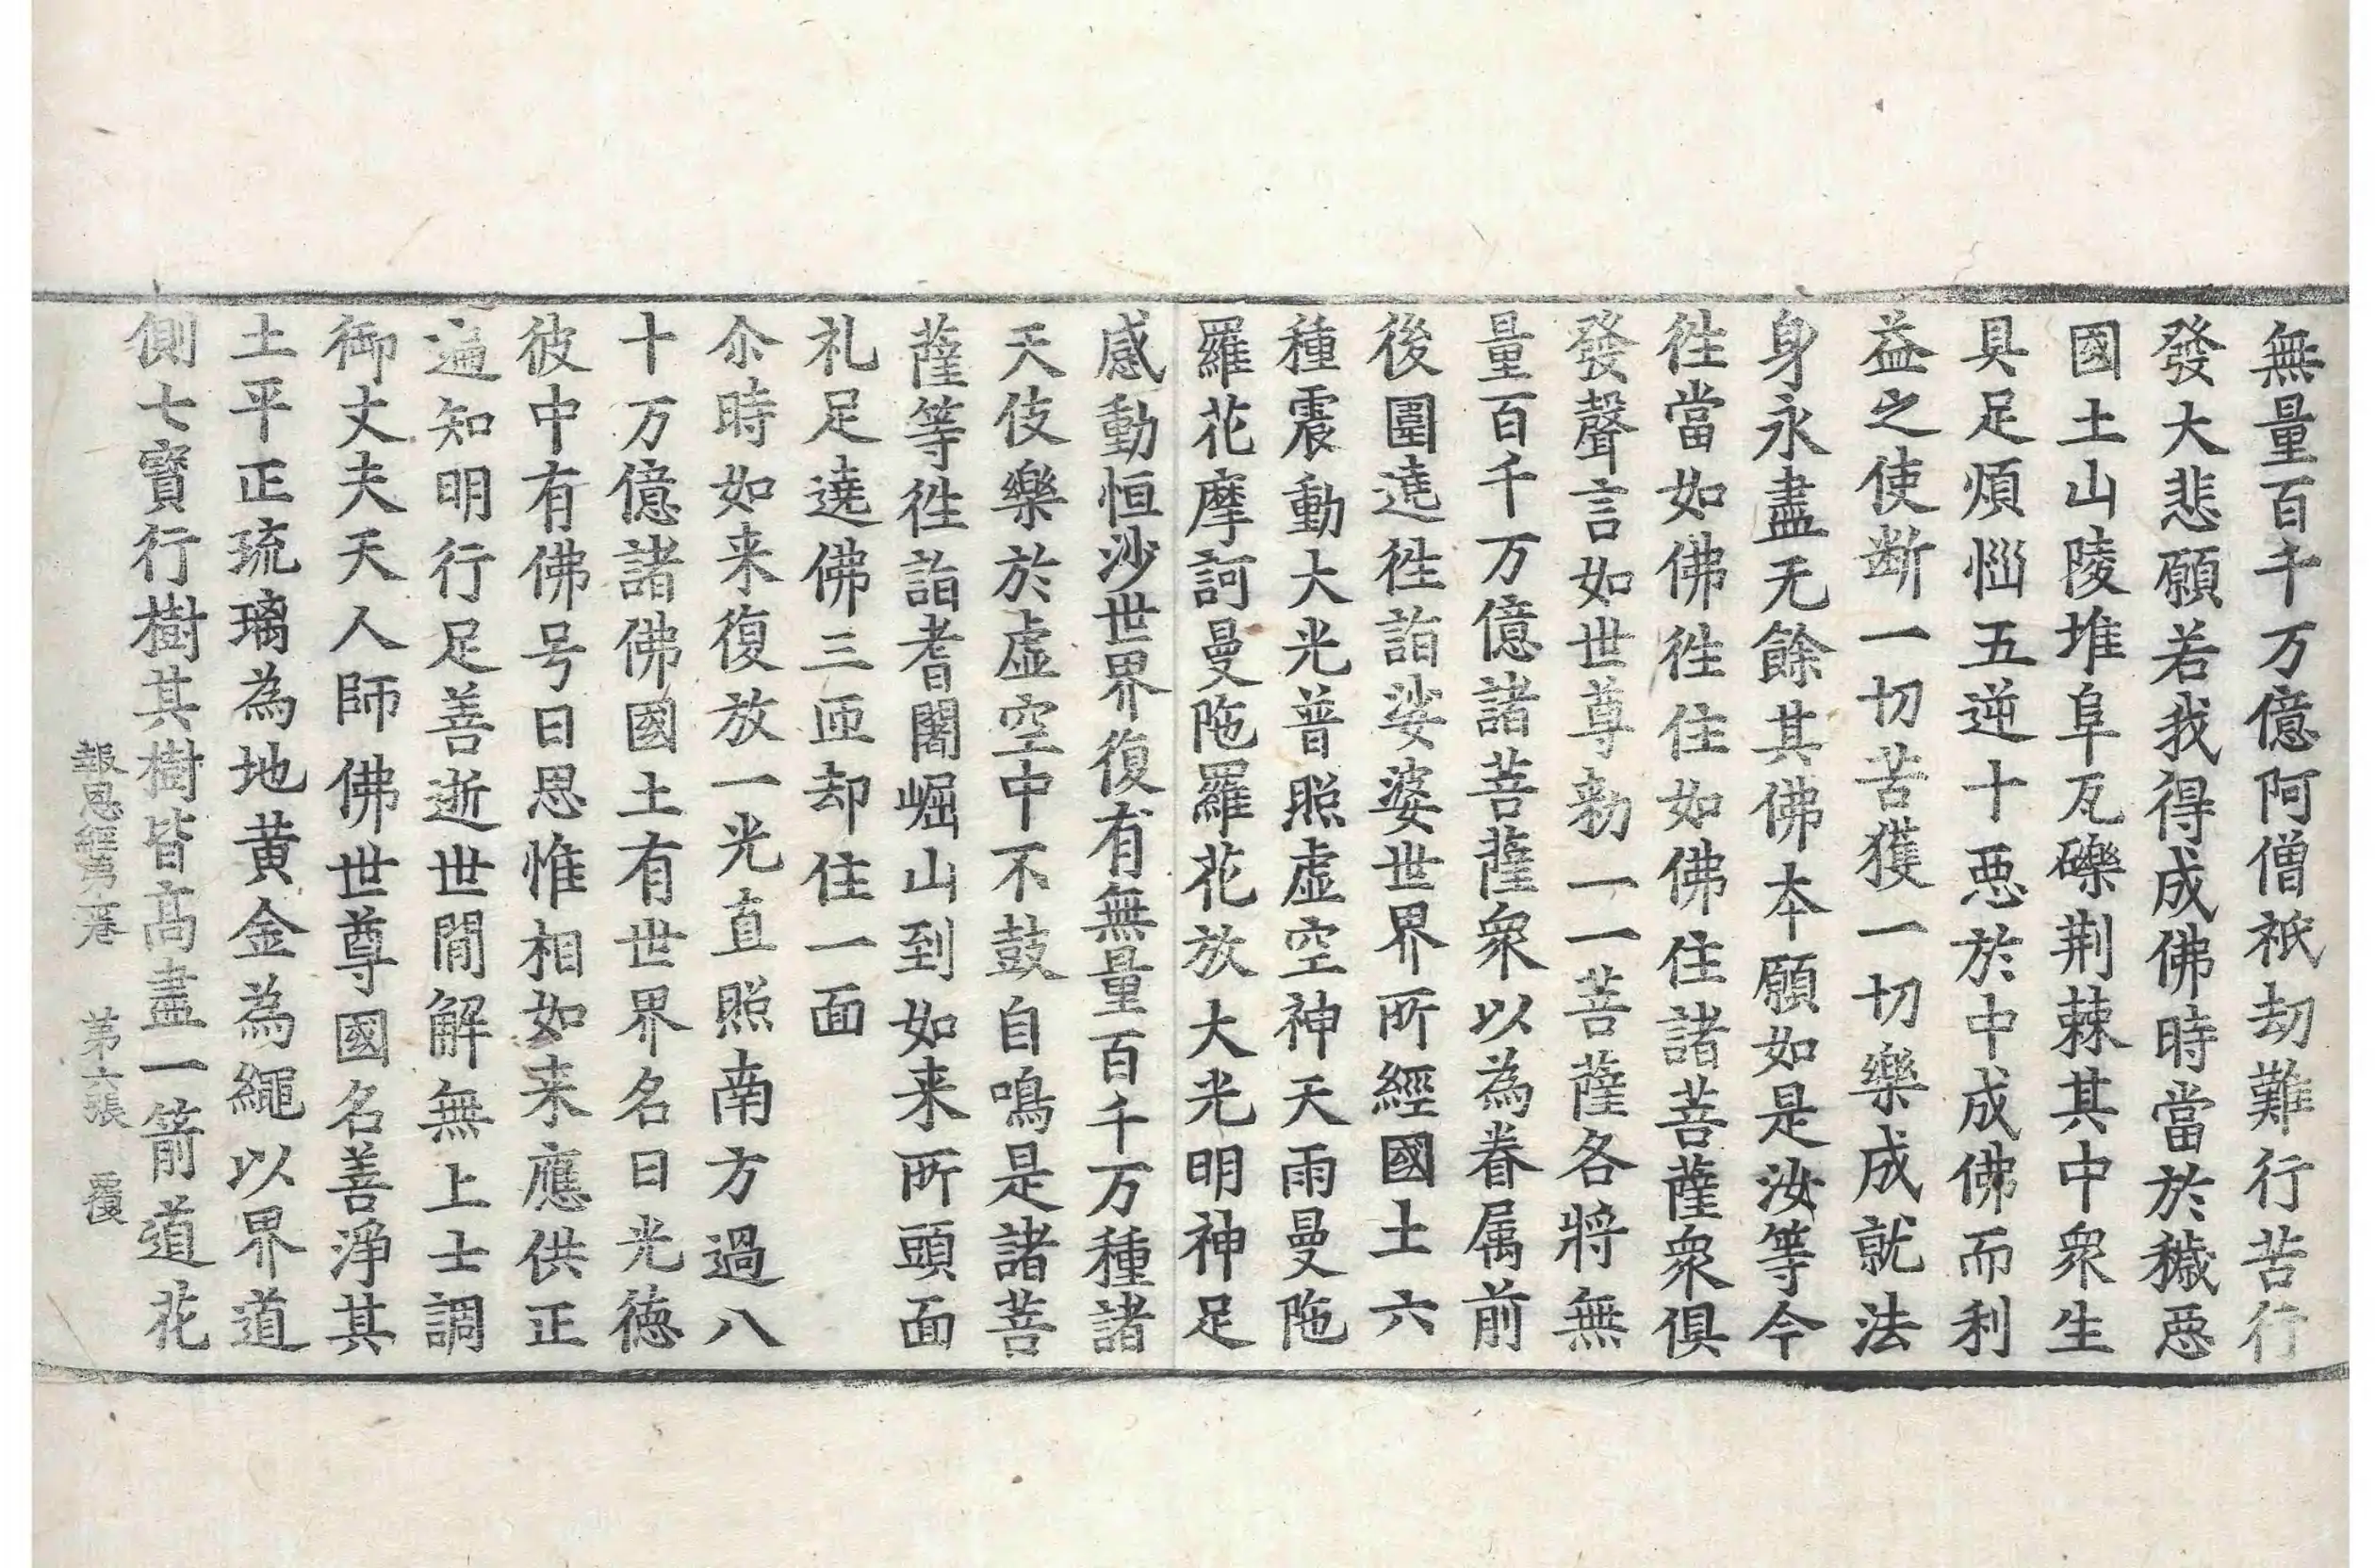 無量百千万億阿僧祇劫難行苦行
發大悲願若我得成佛時當於穢惡
國土山陵堆阜瓦礫荆棘其中衆生
具足煩惱五逆十惡於中成佛而利
益之使断一切苦獲一切樂成就法
身永盡无餘其佛本願如是汝等今
徃當如佛徃住如佛住諸菩薩衆俱
發聲言如世尊勑一一菩薩各將無
量百千万億諸菩薩衆以為眷属前
後圍遶徃詣娑婆世界所經國土六
種震動大光普照虛空神天雨曼陁
羅花摩訶曼陁羅花放大光明神足
感動恒沙世界復有無量百千万種諸
天伎樂於虛空中不鼓自鳴是諸菩
薩等徃詣耆闍崛山到如来所頭面
礼足遶佛三匝却住一面
尒時如来復放一光直照南方過八
十万億諸佛國土有世界名曰光徳
彼中有佛号曰思惟相如来應供正
遍知明行足善逝世間解無上士調
御丈夫天人師佛世尊國名善淨其
土平正琉璃為地黄金為繩以界道
側七寶行樹其樹皆高盡一箭道花
報恩經第一卷 第六張 覆